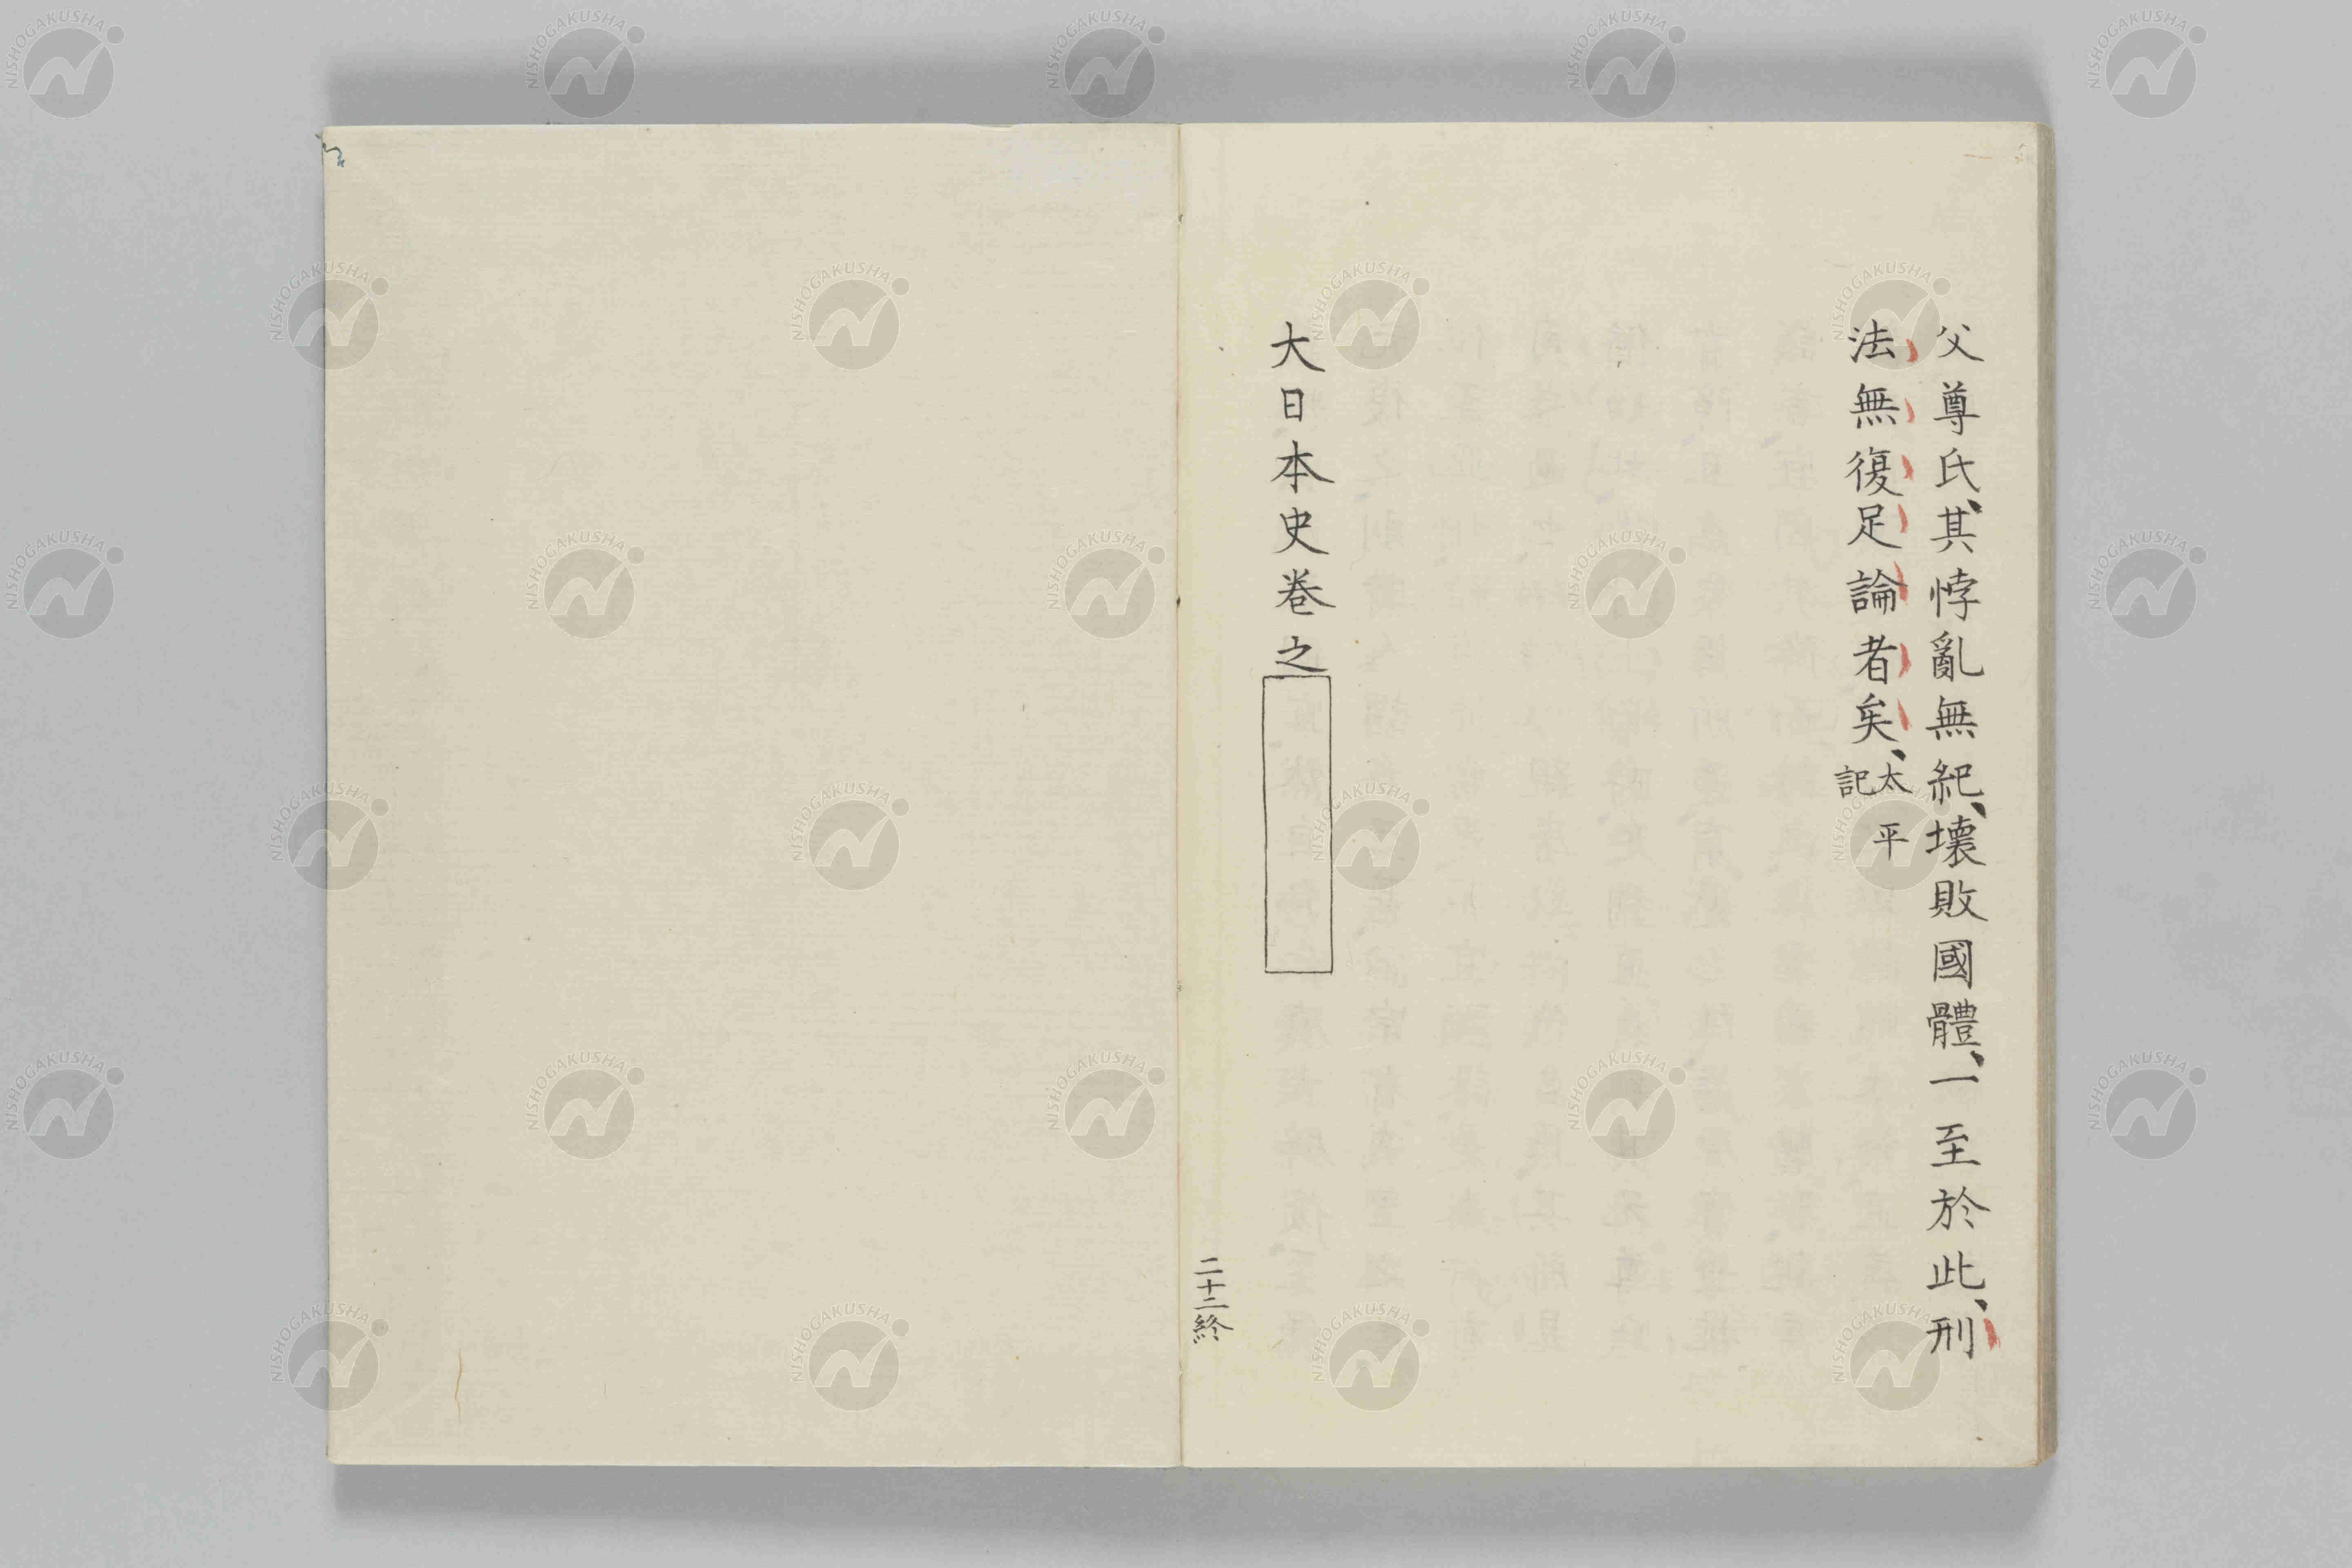 父尊氏、其悖亂無紀、壞敗國體、一至於此、刑
法無復足論者矣、太平記
大日本史卷之
二十二終
NISHOGAKUSHA